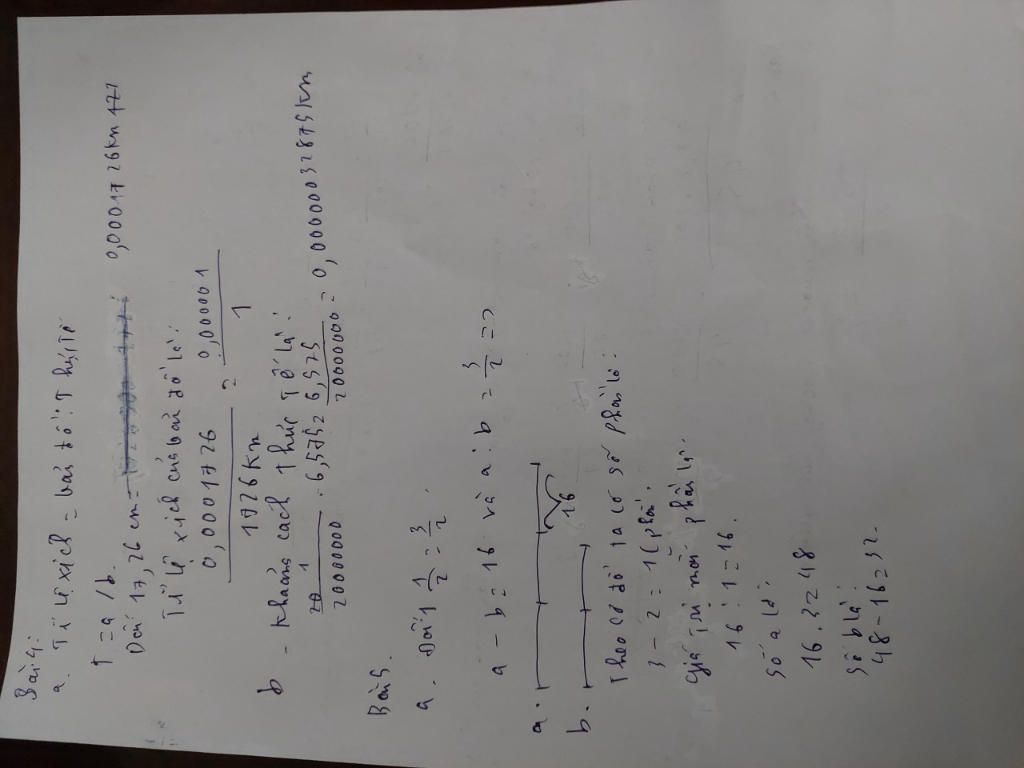 Bài 4:
a. Tỉ lệ xích = bản đồ : Thực tế
T = a / b.
Đổi 17,26 cm = 0,0001726km
Tỉ lệ xích của bản đồ là:
0,0001726 / 1726 km = 0,00001 / 1
b - Khoảng cách thực tế là:
1 / 20000000 . 6,575 = 6,575 / 20000000 = 0,00000032875km
Bài 5.
a. Đổi 1 1/2 = 3/2.
a - b = 16 và a : b = 3/2 =>
a.
b.
16
Theo sơ đồ ta có số phần là:
3 - 2 = 1 (phần).
Giá trị mỗi phần là:
16 : 1 = 16.
Số a là:
16 . 3 = 48
Số b là:
48 - 16 = 32.